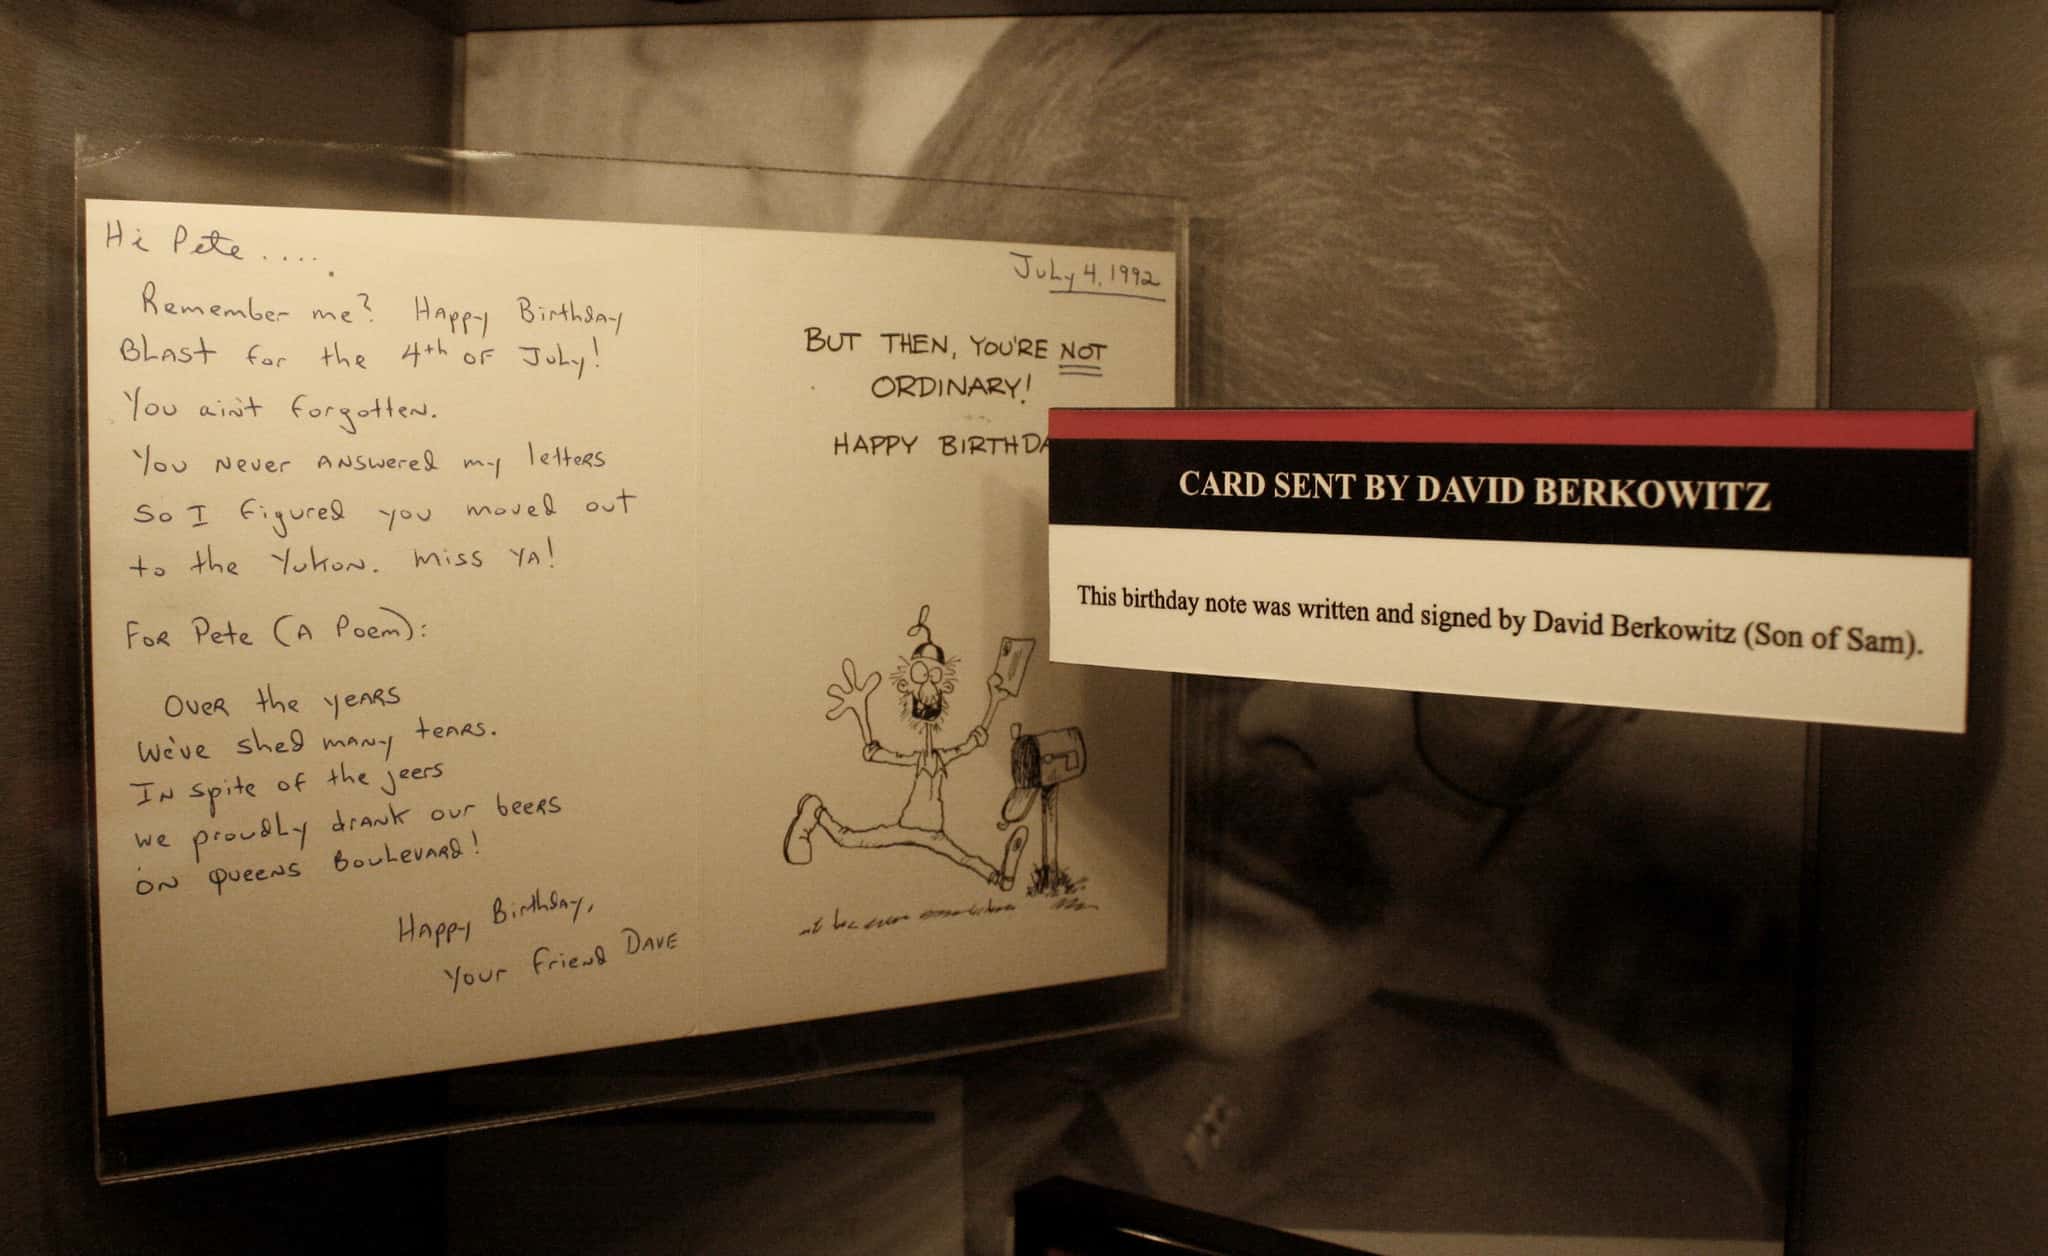 Hi Pete.....
Remember me? Happy Birthday
Blast for the 4th of July!
You ain't forgotten.
You never answered my letters
so I figured you moved out
to the Yukon. Miss ya!
For Pete (A Poem):
Over the years
we've shed many tears.
In spite of the jeers
we proudly drank our beers
on Queens Boulevard!
Happy Birthday,
Your friend Dave
July 4, 1992
BUT THEN, YOU'RE NOT
ORDINARY!
HAPPY BIRTHDA
CARD SENT BY DAVID BERKOWITZ
This birthday note was written and signed by David Berkowitz (Son of Sam).